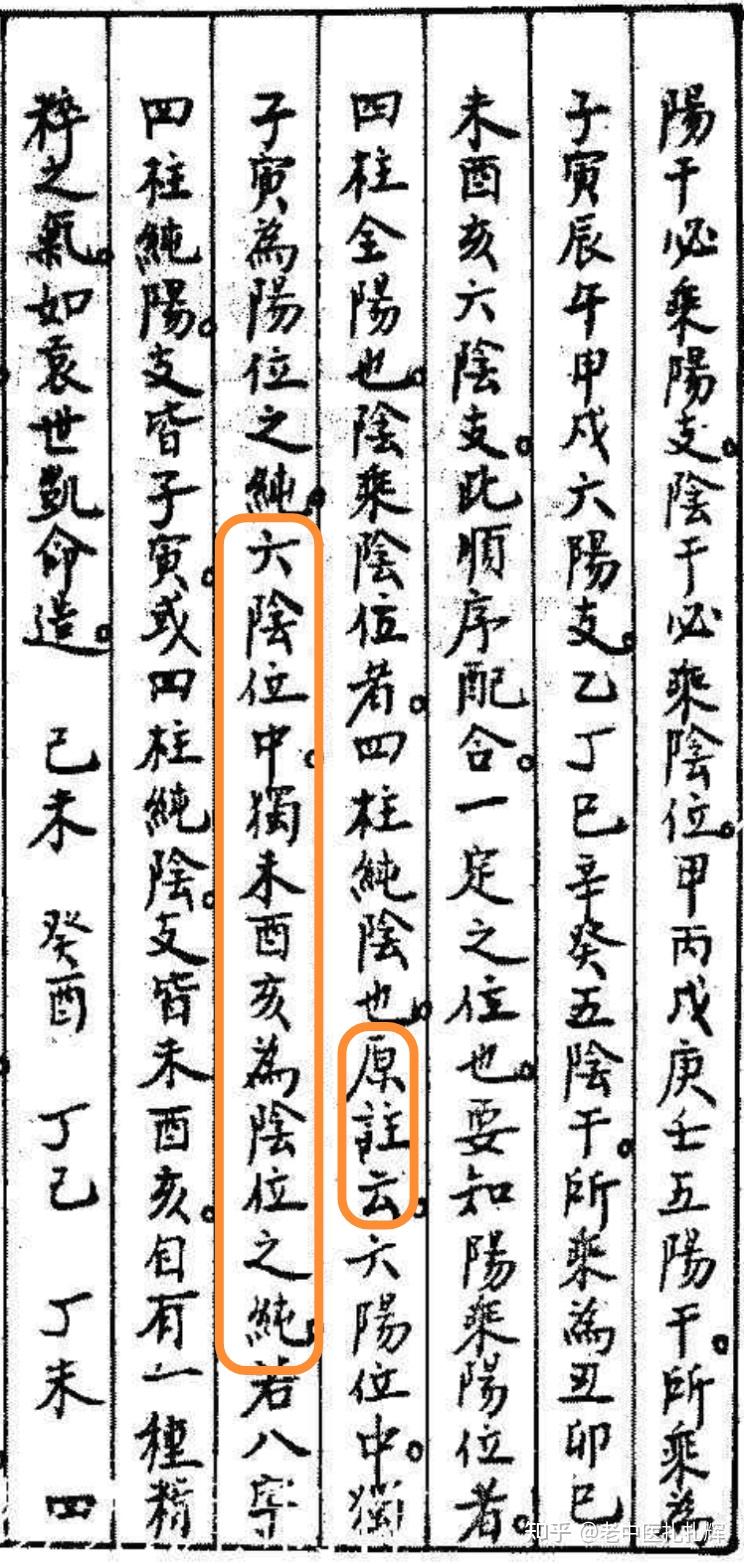 陽干必乘陽支。陰干必乘陰位。甲丙戊庚壬五陽干。所乘為
子寅辰午申戌六陽支。乙丁已辛癸五陰干。所乘為丑卯巳
未酉亥六陰支。此順序配合。一定之位也。要知陽乘陽位者。
四柱全陽也。陰乘陰位者。四柱純陰也。原註云。六陽位中。獨
子寅為陽位之純。六陰位中。獨未酉亥為陰位之純。若八字
四柱純陽。支皆子寅。或四柱純陰。支皆未酉亥。自有一種精
粹之氣。如袁世凱命造。 己未 癸酉 丁巳 丁未 四
知乎 @老中医扎扎辉